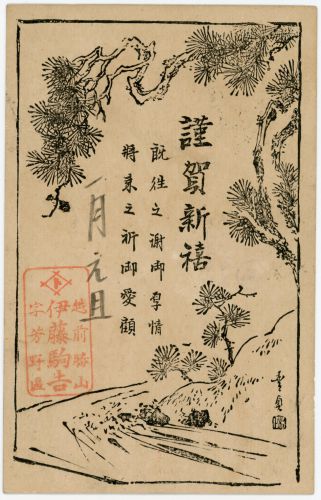 謹賀新禧
既往之謝御厚情
將来之祈御愛顧
一月元旦
越前勝山
伊藤駒吉
字芳野區